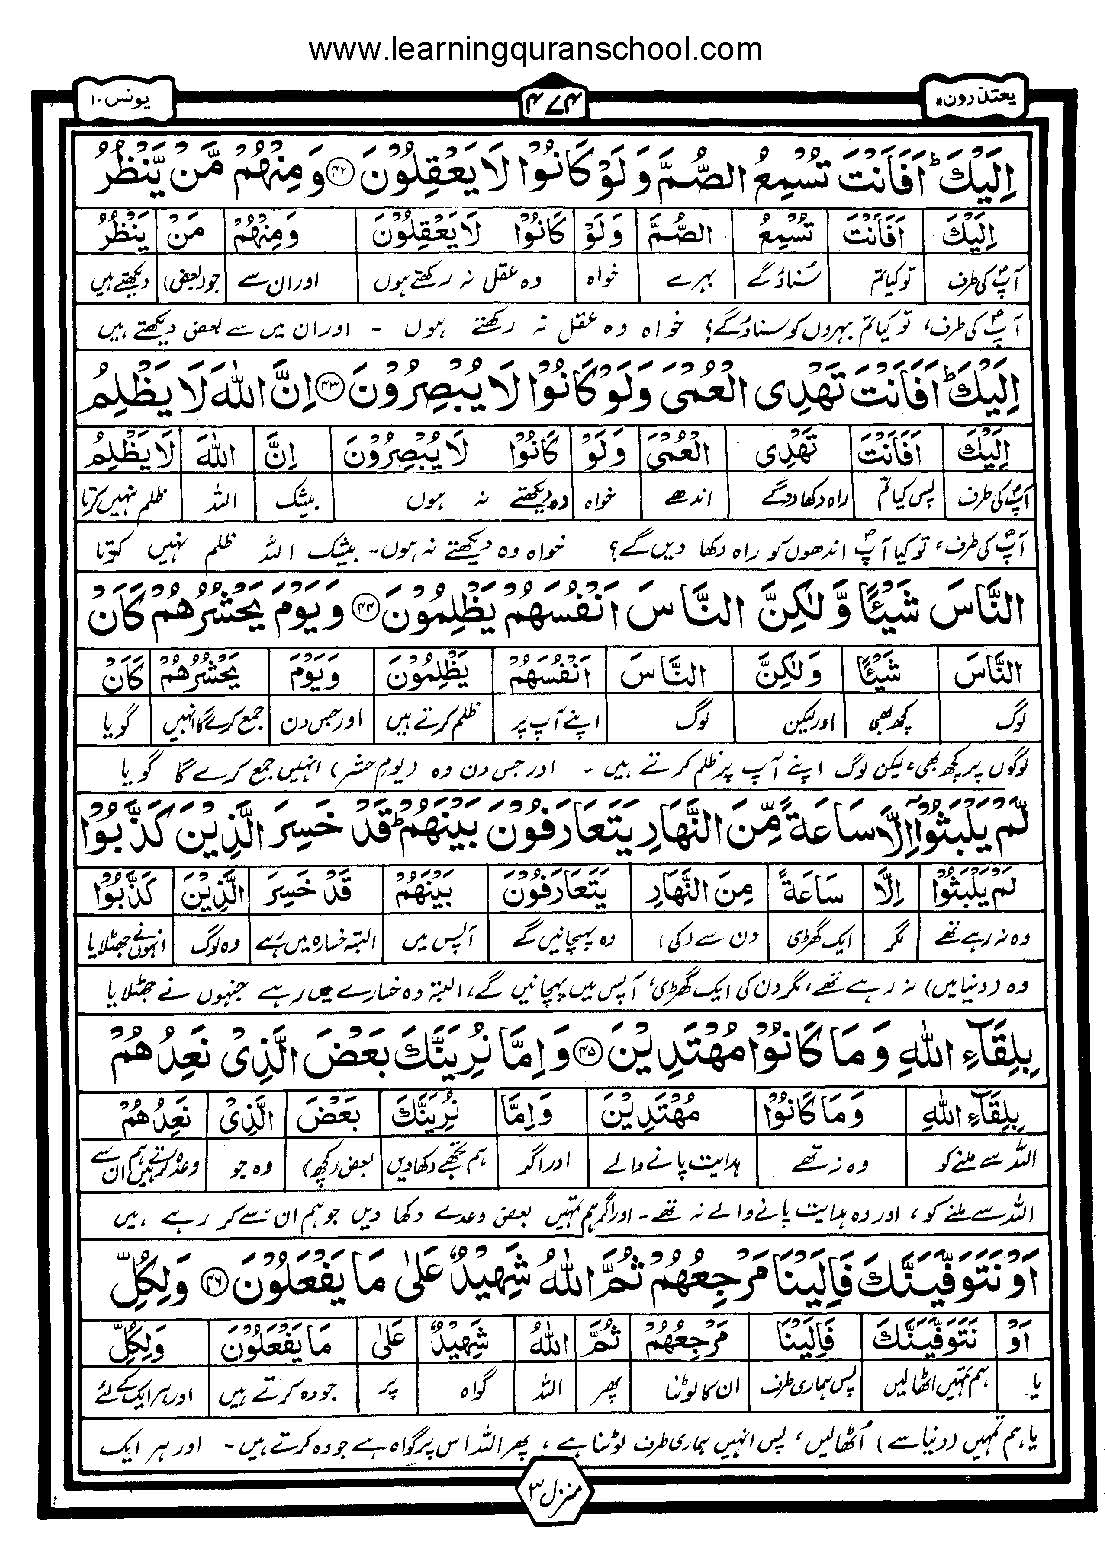 www.learningquranschool.com
یعتذرون ۱۱ ۴۷۴ یونس ۱۰
اِلَیْکَ ؕ اَفَاَنْتَ تُسْمِعُ الصُّمَّ وَلَوْ کَانُوْا لَا یَعْقِلُوْنَ ﴿۴۲﴾ وَمِنْهُمْ مَّنْ یَّنْظُرُ
اِلَیْکَ اَفَاَنْتَ تُسْمِعُ الصُّمَّ وَلَوْ کَانُوْا لَا یَعْقِلُوْنَ وَمِنْهُمْ مَنْ یَنْظُرُ
آپؐ کی طرف تو کیا تم سناؤ گے بہرے خواہ وہ عقل نہ رکھتے ہوں اور ان سے جو (بعض) دیکھتے ہیں
آپؐ کی طرف، تو کیا تم بہروں کو سناؤ گے؟ خواہ وہ عقل نہ رکھتے ہوں - اور ان میں سے بعض دیکھتے ہیں
اِلَیْکَ ؕ اَفَاَنْتَ تَهْدِی الْعُمْیَ وَلَوْ کَانُوْا لَا یُبْصِرُوْنَ ﴿۴۳﴾ اِنَّ اللّٰهَ لَا یَظْلِمُ
اِلَیْکَ اَفَاَنْتَ تَهْدِی الْعُمْیَ وَلَوْ کَانُوْا لَا یُبْصِرُوْنَ اِنَّ اللّٰهَ لَا یَظْلِمُ
آپؐ کی طرف پس کیا تم راہ دکھا دو گے اندھے خواہ وہ دیکھتے نہ ہوں بیشک اللہ ظلم نہیں کرتا
آپؐ کی طرف، تو کیا آپؐ اندھوں کو راہ دکھا دیں گے؟ خواہ وہ دیکھتے نہ ہوں - بیشک اللہ ظلم نہیں کرتا
النَّاسَ شَیْـًٔا وَّلٰکِنَّ النَّاسَ اَنْفُسَهُمْ یَظْلِمُوْنَ ﴿۴۴﴾ وَیَوْمَ یَحْشُرُهُمْ کَاَنْ
النَّاسَ شَیْـًٔا وَلٰکِنَّ النَّاسَ اَنْفُسَهُمْ یَظْلِمُوْنَ وَیَوْمَ یَحْشُرُهُمْ کَاَنْ
لوگ کچھ بھی اور لیکن لوگ اپنے آپ پر ظلم کرتے ہیں اور جس دن جمع کرے گا انہیں گویا
لوگوں پر کچھ بھی، لیکن لوگ اپنے آپ پر ظلم کرتے ہیں - اور جس دن وہ (یوم حشر) انہیں جمع کرے گا گویا
لَّمْ یَلْبَثُوْۤا اِلَّا سَاعَةً مِّنَ النَّهَارِ یَتَعَارَفُوْنَ بَیْنَهُمْ ؕ قَدْ خَسِرَ الَّذِیْنَ کَذَّبُوْا
لَمْ یَلْبَثُوْا اِلَّا سَاعَةً مِنَ النَّهَارِ یَتَعَارَفُوْنَ بَیْنَهُمْ قَدْ خَسِرَ الَّذِیْنَ کَذَّبُوْا
وہ نہ رہے تھے مگر ایک گھڑی دن سے (کی) وہ پہچانیں گے آپس میں البتہ خسارہ میں رہے وہ لوگ انہوں نے جھٹلایا
وہ (دنیا میں) نہ رہے تھے، مگر دن کی ایک گھڑی، آپس میں پہچانیں گے، البتہ وہ خسارے میں رہے جنہوں نے جھٹلایا
بِلِقَآءِ اللّٰهِ وَمَا کَانُوْا مُهْتَدِیْنَ ﴿۴۵﴾ وَاِمَّا نُرِیَنَّکَ بَعْضَ الَّذِیْ نَعِدُهُمْ
بِلِقَآءِ اللّٰهِ وَمَا کَانُوْا مُهْتَدِیْنَ وَاِمَّا نُرِیَنَّکَ بَعْضَ الَّذِیْ نَعِدُهُمْ
اللہ سے ملنے کو وہ نہ تھے ہدایت پانے والے اور اگر ہم تجھے دکھا دیں بعض (کچھ) وہ جو وعدہ کرتے ہیں ہم ان سے
اللہ سے ملنے کو، اور وہ ہدایت پانے والے نہ تھے - اور اگر ہم تمہیں بعض وعدے دکھا دیں جو ہم ان سے کر رہے ہیں
اَوْ نَتَوَفَّیَنَّکَ فَاِلَیْنَا مَرْجِعُهُمْ ثُمَّ اللّٰهُ شَهِیْدٌ عَلٰی مَا یَفْعَلُوْنَ ﴿۴۶﴾ وَلِکُلِّ
اَوْ نَتَوَفَّیَنَّکَ فَاِلَیْنَا مَرْجِعُهُمْ ثُمَّ اللّٰهُ شَهِیْدٌ عَلٰی مَا یَفْعَلُوْنَ وَلِکُلِّ
یا ہم تمہیں اٹھا لیں پس ہماری طرف ان کا لوٹنا پھر اللہ گواہ پر جو وہ کرتے ہیں اور ہر ایک کے لئے
یا ہم تمہیں (دنیا سے) اُٹھا لیں، پس انہیں ہماری طرف لوٹنا ہے، پھر اللہ اس پر گواہ ہے جو وہ کرتے ہیں - اور ہر ایک
منزل ۳